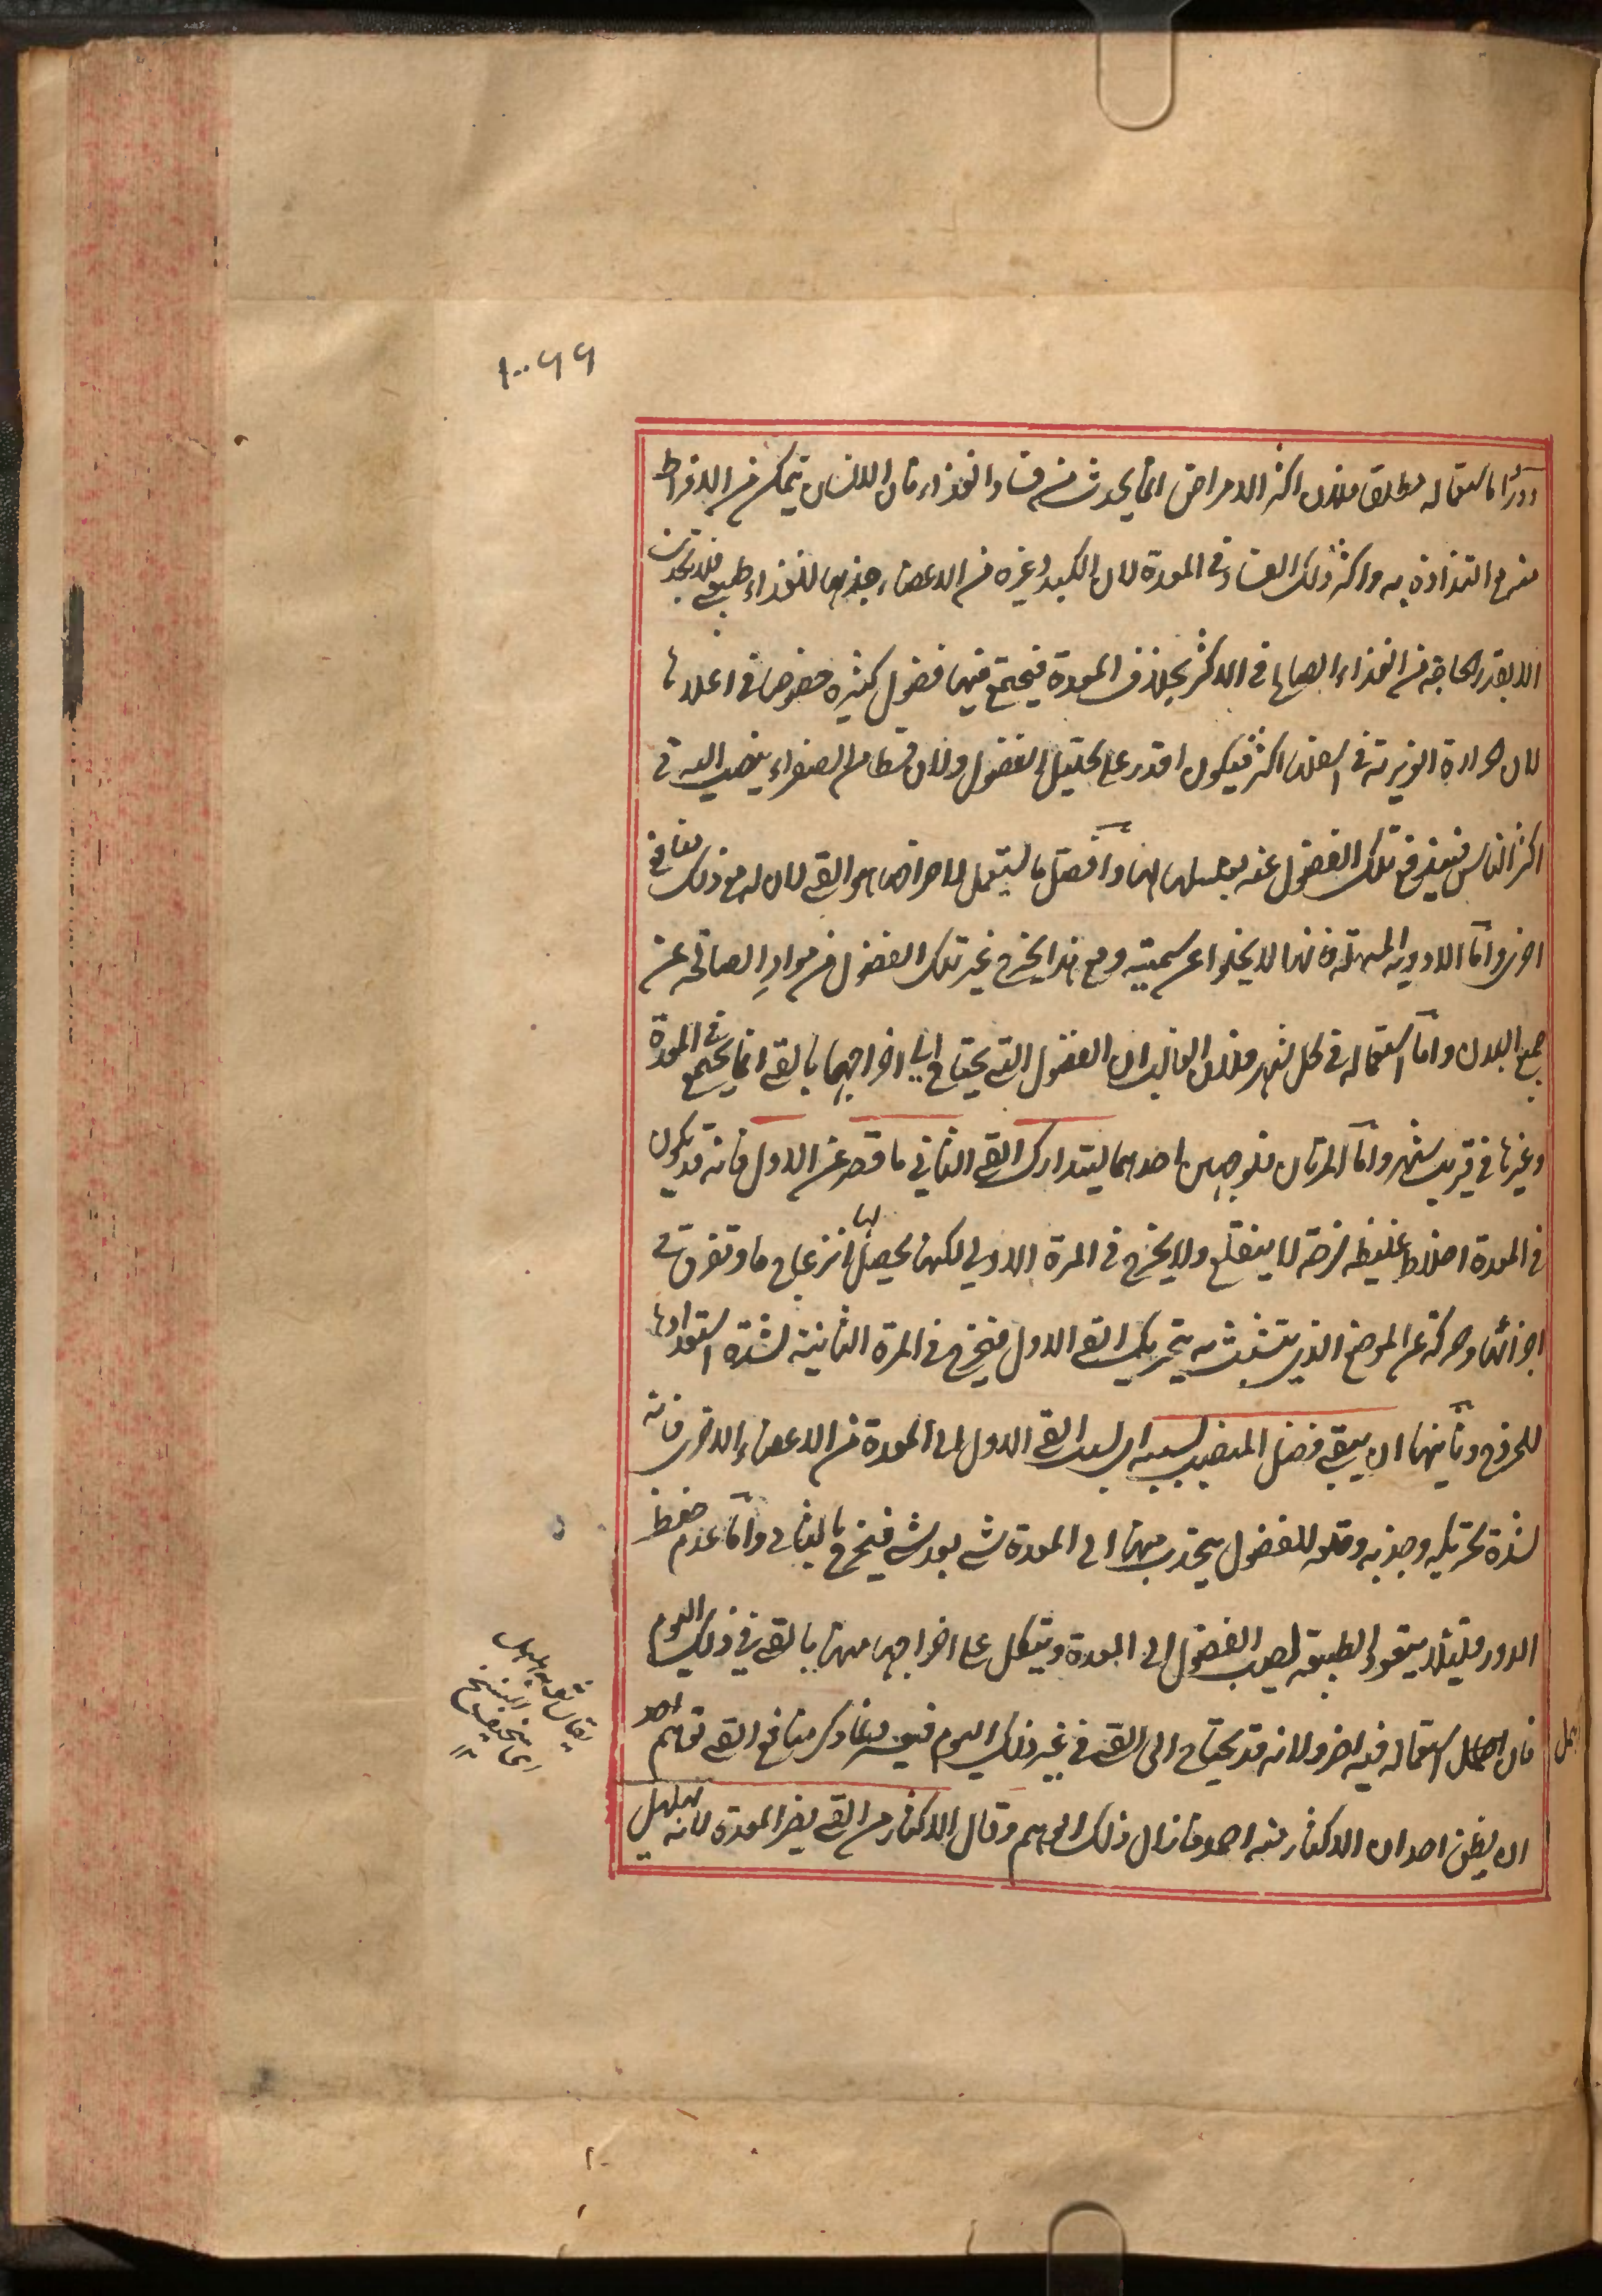 ١٠٠٩٩
دورًا ما استعماله مطلقا فلان اكثر الامراض انما يحدث من فساد الغذاء فان الانسان يتمكن من الافراط
منه مع التذاذه به واكثر ذلك الفساد في المعدة لان الكبد وغيره من الاعضاء جذبها للغذاء طبيعي فلا تجذب
الا بقدر الحاجة من الغذاء الصالح في الاكثر بخلاف المعدة فيجتمع فيها فضول كثيره خصوصا في اعلاها
لان حرارة الغريزية في اسفلها اكثر فيكون اقدر على تحليل الفضول ولان قسطا من الصفراء ينصب اليه في
اكثر الناس فيندفع تلك الفضول عنه بغسلها لها وافضل ما يستعمل لاخراجها هو القي لان له مع ذلك منافع
اخر واما الادويه المسهلة فانها لا يخلوا عن سمية ومع هذا يخرج غير تلك الفضول من مواد الصالحه عن
جميع البدن واما استعماله في كل شهر فلان الغالب ان الفضول التي يحتاج الى اخراجها بالقي انما يجتمع في المعدة
وغيرها في قريب شهر واما المرتان فلوجهين احدهما ليتدارك القي الثاني ما قصر عن الاول فانه قد يكون
في المعدة اخلاط غليظه لزجة لا ينقلع ولا يخرج في المرة الاولى لكنها يحصل لها انزعاج ما وتفرق في
اجزائها وحركة عن الموضع الذي يتشبث به بتحريك القي الاول فيخرج في المرة الثانية لشدة استعدادها
للخروج وثانيهما ان ينقي فضل المنصب بسببه اي بسبب القي الاول الى المعدة من الاعضاء الاخرى فانه
لشدة تحريكه وجذبه وقلعه للفضول ينجذب منها الى المعدة شي بعد شي فيخرج بالثاني واما عدم حفظ
الدور فلئلا يتعود الطبيعة لصب الفضول الى المعدة ويتكل على اخراجها منها بالقي في ذلك اليوم
فان اهمل استعماله فيه اضر ولانه قد يحتاج الى القي في غير ذلك اليوم فيعسر ولما ذكر منافع القي توهم احد
ان يظن احد ان الاكثار منه احمد فازال ذلك الوهم وقال الاكثار من القي يضر المعدة لانه يهلهل